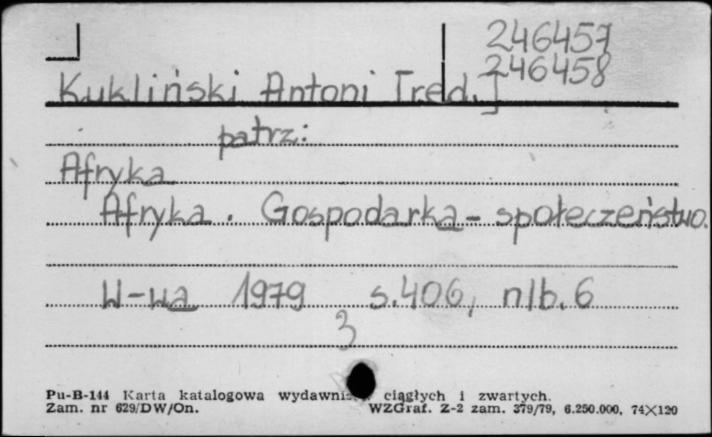 246457
246458
Kukliński Antoni [red.]
patrz:
Afryka
Afryka. Gospodarka - społeczeństwo.
W-wa 1979 s.406, nlb.6
3
Pu-B-144 Karta katalogowa wydawnictw ciągłych i zwartych.
Zam. nr 629/DW/On. WZGraf. Z-2 zam. 379/79, 6.250.000, 74×120